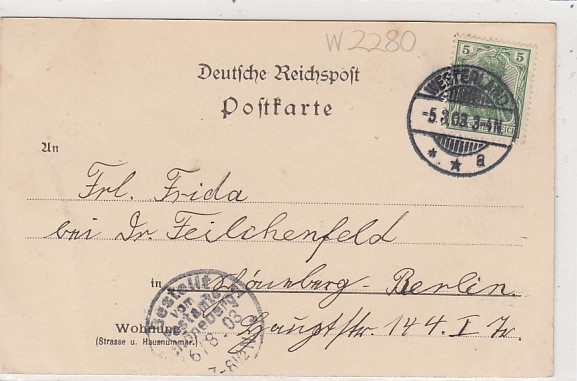 W 2280
Deutsche Reichspost
Postkarte
5 5
WESTERLAND
-5.8.03.3-4N.
* * a
An
Frl. Frida
bei Dr. Feilchenfeld
in Schöneberg-Berlin.
Bestellt
vom
Postamte
Schöneberg
6/8.03
7-8½
Wohnung
(Strasse u. Hausnummer.)
Hauptstr. 144. I Tr.